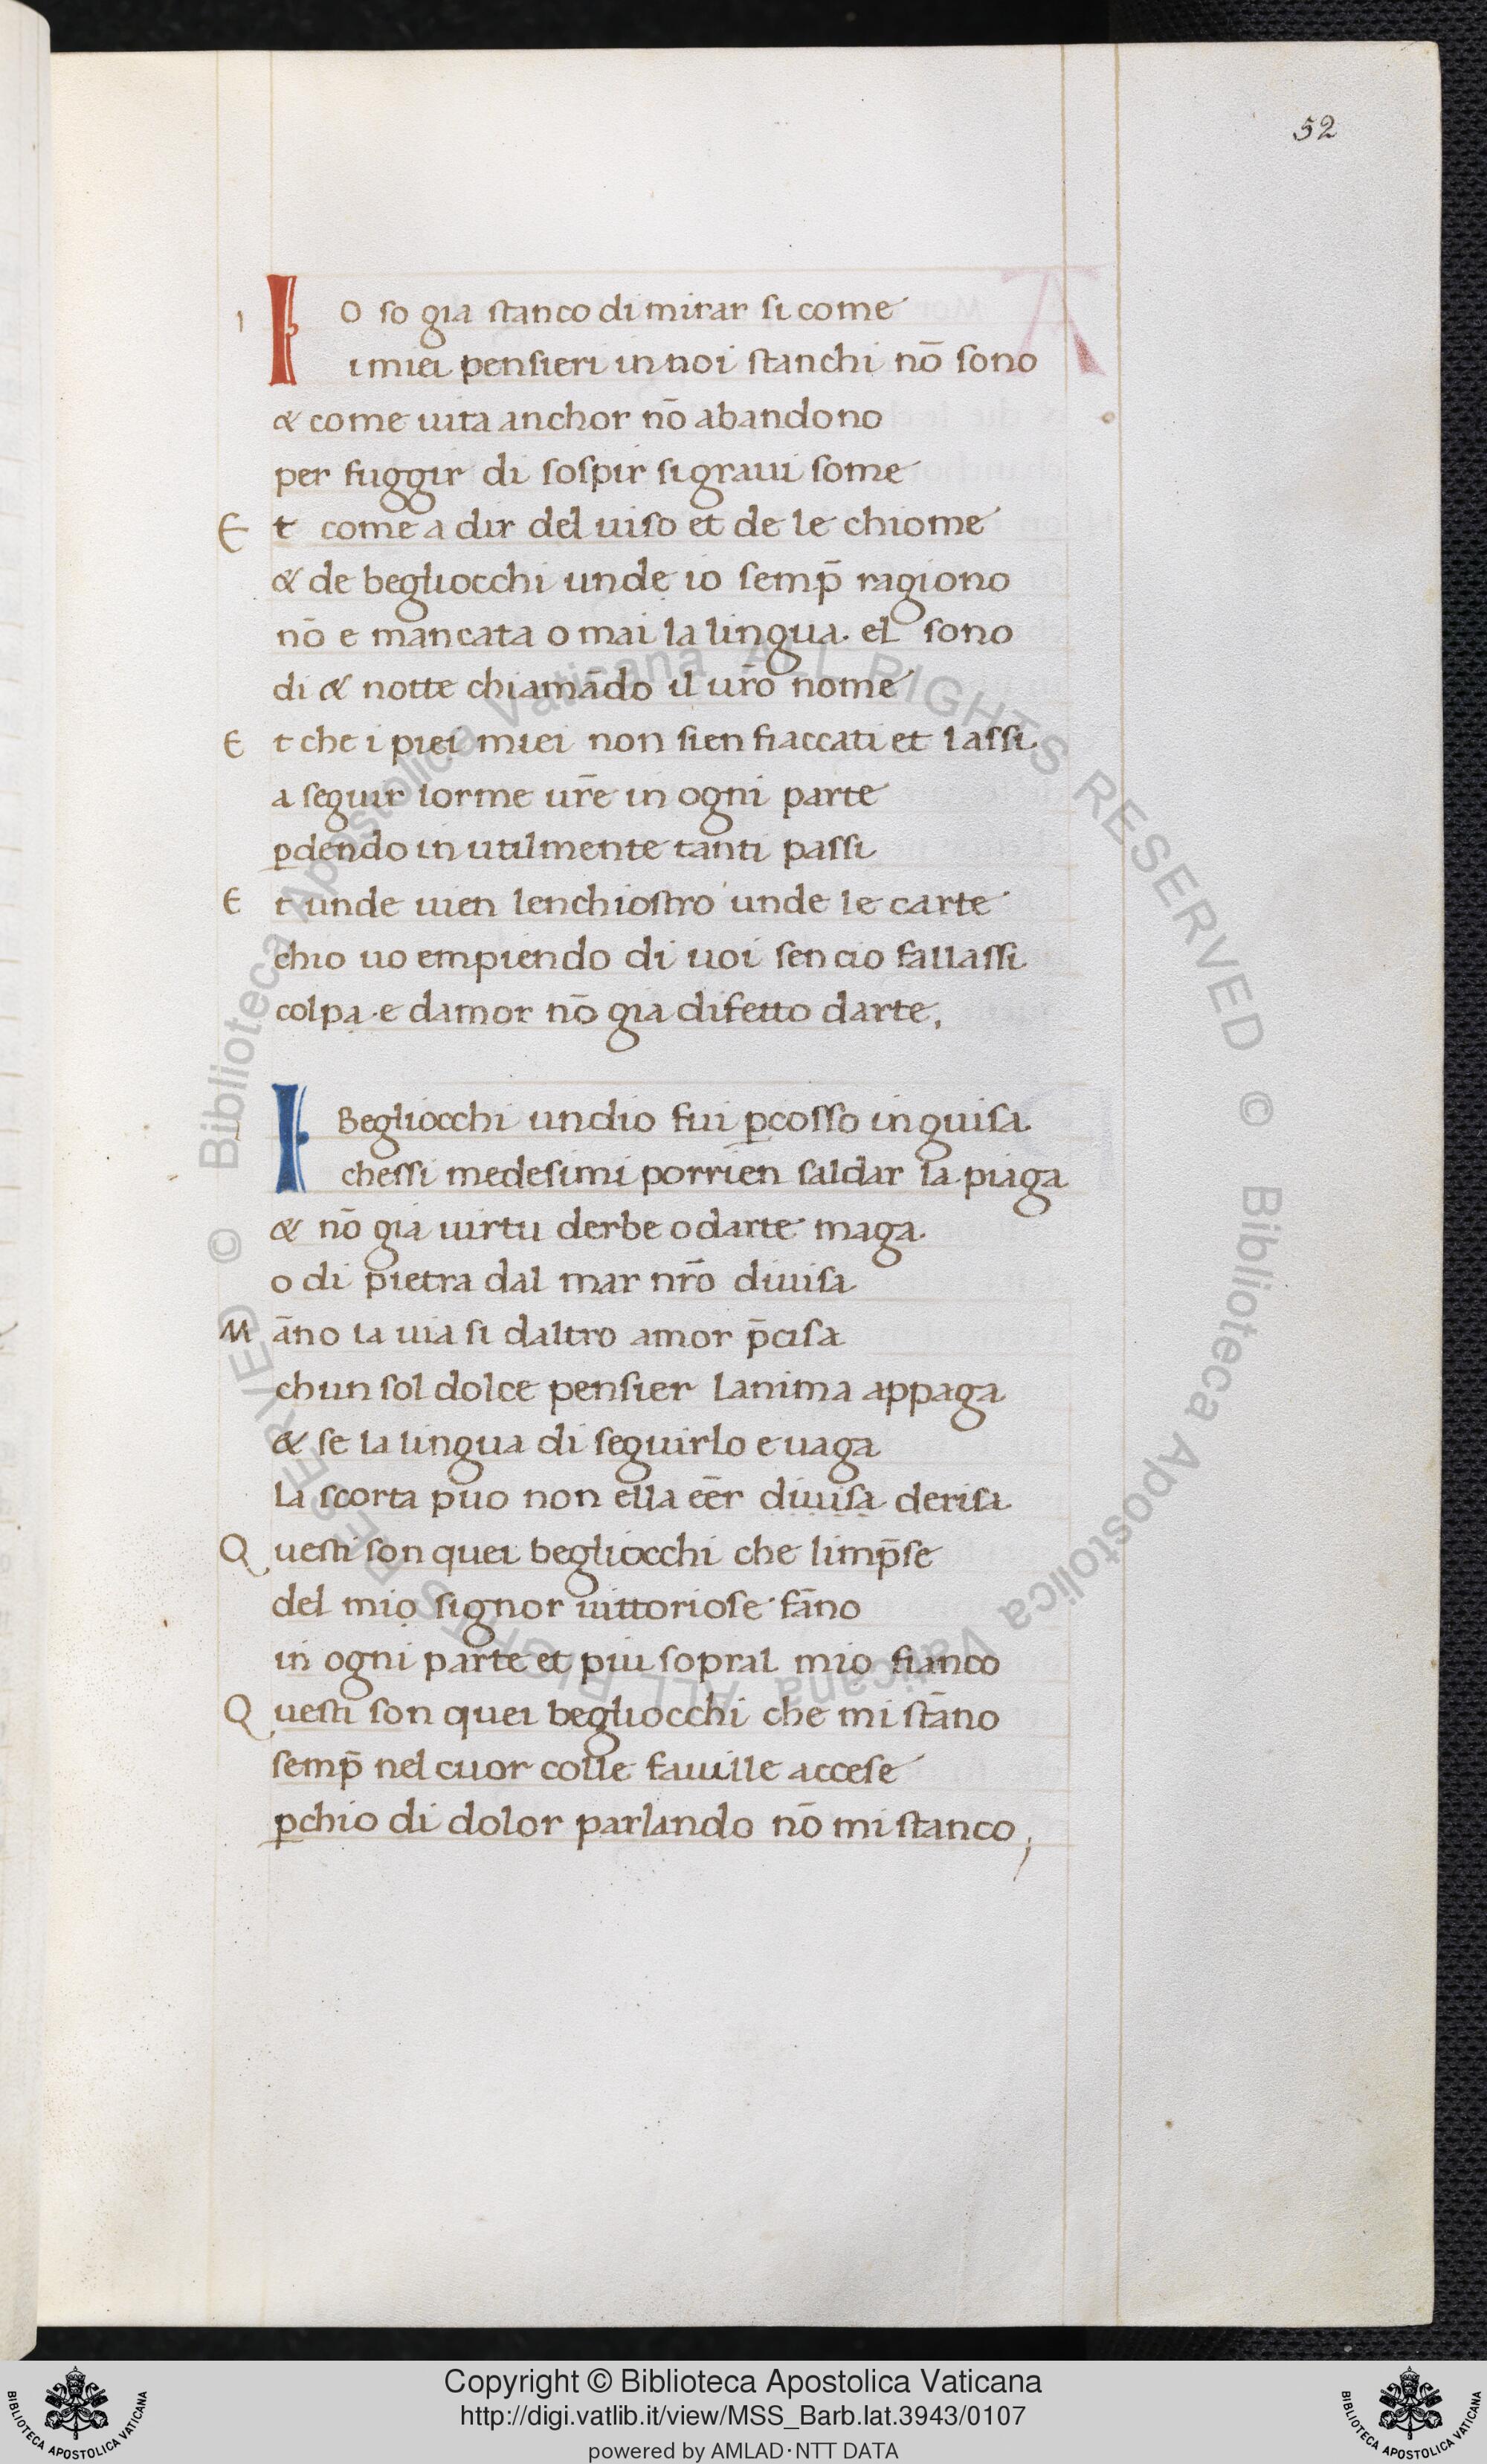 52
IO so gia stanco di mirar si come
i miei pensieri in noi stanchi nō sono
& come uita anchor nō abandono
per fuggir di sospir si graui some
Et come a dir del uiso et de le chiome
& de begliocchi unde io semp̄ ragiono
nō e mancata omai la lingua. el sono
di & notte chiamādo il ur̄o nome
Et che i piei miei non sien fiaccati et lassi
a seguir lorme ur̄e in ogni parte
ꝑdendo in utilmente tanti passi
Et unde uien lenchiostro unde le carte
chio uo empiendo di uoi sen cio fallassi
colpa. e damor nō gia difetto darte,
I Begliocchi undio fui ꝑcosso in guisa
chessi medesimi porrien saldar la piaga
& nō gia uirtu derbe o darte maga
o di pietra dal mar nr̄o diuisa
Māno la uia si daltro amor p̄cisa
chun sol dolce pensier lanima appaga
& se la lingua di seguirlo e uaga
la scorta puo non ella eēr diuisa derisa
Questi son quei begliocchi che limp̄se
del mio signor uittoriose fāno
in ogni parte et piu sopral mio fianco
Questi son quei begliocchi che mi stāno
semp̄ nel cuor colle fauille accese
ꝑchio di dolor parlando nō mi stanco;
© Biblioteca Apostolica Vaticana ALL RIGHTS RESERVED © Biblioteca Apostolica Vaticana ALL RIGHTS RESERVED
BIBLIOTECA APOSTOLICA VATICANA
Copyright © Biblioteca Apostolica Vaticana
http://digi.vatlib.it/view/MSS_Barb.lat.3943/0107
powered by AMLAD·NTT DATA
BIBLIOTECA APOSTOLICA VATICANA